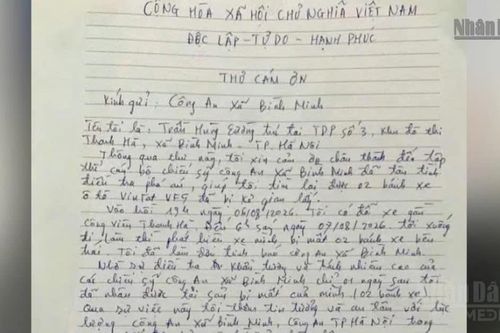 CỘNG HÒA XÃ HỘI CHỦ NGHĨA VIỆT NAM
Nhân D
ĐỘC LẬP - TỰ DO - HẠNH PHÚC
THƠ CÁM ƠN
Kính gửi: Công An Xã Bình Minh
Tên tôi là: Trần Hùng Cường trú tại TDP số 3, Khu đô thị
Thanh Hà, xã Bình Minh - TP. Hà Nội
Thông qua thư này, tôi xin cám ơn chân thành đến tập
thể cán bộ chiến sỹ công An Xã Bình Minh đã tận tình
điều tra phá án, giúp tôi tìm lại được 02 bánh xe
ô tô VinFat VF5 đã bị kẻ gian lấy.
Vào hồi 19h ngày 06/08/2026. Tôi có đỗ xe gần
công viên Thanh Hà. Đến 6h sáng ngày 07/08/2026. tôi xuống
đi làm thì phát hiện xe mình bị mất 02 bánh xe bên
trái. Tôi đã làm đơn trình báo công An Xã Bình Minh.
Nhờ sự điều tra An khẩn trương và trách nhiệm cao của
các chiến sỹ công An Xã Bình Minh chỉ 01 ngày sau tôi
đã nhận được tài sản bị mất của mình (02 bánh xe)
Qua sự việc này tôi thêm tin tưởng và an tâm với lực
lượng công An xã Bình Minh, Công An TP Hà Nội trong